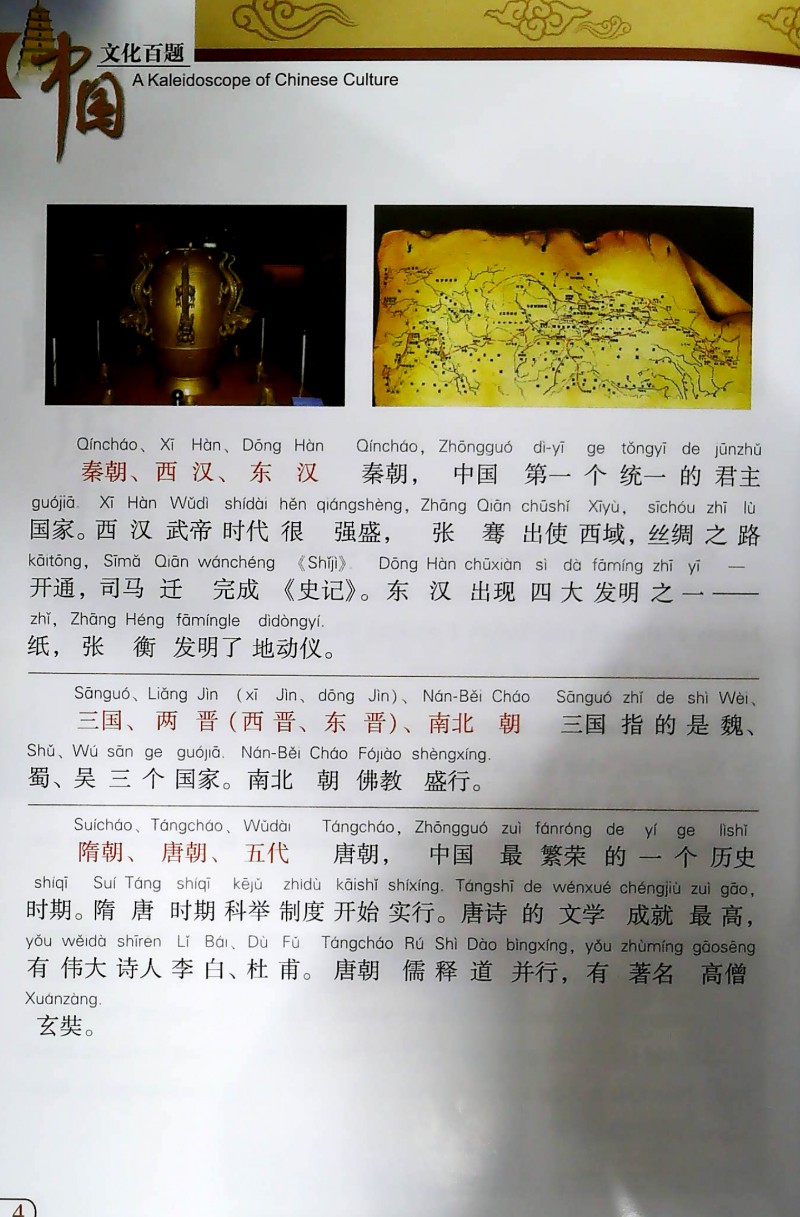 中国
文化百题
A Kaleidoscope of Chinese Culture
Qíncháo、 Xī Hàn、Dōng Hàn Qíncháo, Zhōngguó dì-yī ge tǒngyī de jūnzhǔ
秦朝、西汉、东汉 秦朝，中国第一个统一的君主
guójiā. Xī Hàn Wǔdì shídài hěn qiángshèng, Zhāng Qiān chūshǐ Xīyù, sīchóu zhī lù
国家。西汉武帝时代很强盛，张骞出使西域，丝绸之路
kāitōng, Sīmǎ Qiān wánchéng 《Shǐjì》. Dōng Hàn chūxiàn sì dà fāmíng zhī yī —
开通，司马迁完成《史记》。东汉出现四大发明之一——
zhǐ, Zhāng Héng fāmíngle dìdòngyí.
纸，张衡发明了地动仪。
Sānguó、Liǎng Jìn (xī Jìn、dōng Jìn)、Nán-Běi Cháo Sānguó zhǐ de shì Wèi、
三国、两晋（西晋、东晋）、南北朝 三国指的是魏、
Shǔ、Wú sān ge guójiā. Nán-Běi Cháo Fójiào shèngxíng.
蜀、吴三个国家。南北朝佛教盛行。
Suícháo、Tángcháo、Wǔdài Tángcháo, Zhōngguó zuì fánróng de yí ge lìshǐ
隋朝、唐朝、五代 唐朝，中国最繁荣的一个历史
shíqī Suí Táng shíqī kējǔ zhìdù kāishǐ shíxíng. Tángshī de wénxué chéngjiù zuì gāo,
时期。隋唐时期科举制度开始实行。唐诗的文学成就最高，
yǒu wěidà shīren Lǐ Bái、Dù Fǔ Tángcháo Rú Shì Dào bìngxíng, yǒu zhùmíng gāosēng
有伟大诗人李白、杜甫。唐朝儒释道并行，有著名高僧
Xuánzàng.
玄奘。
4